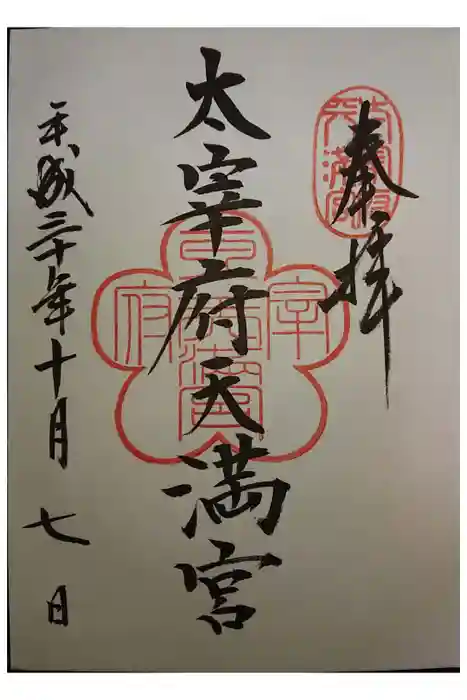 奉拝
太宰府天満宮
平成三十年十月七日